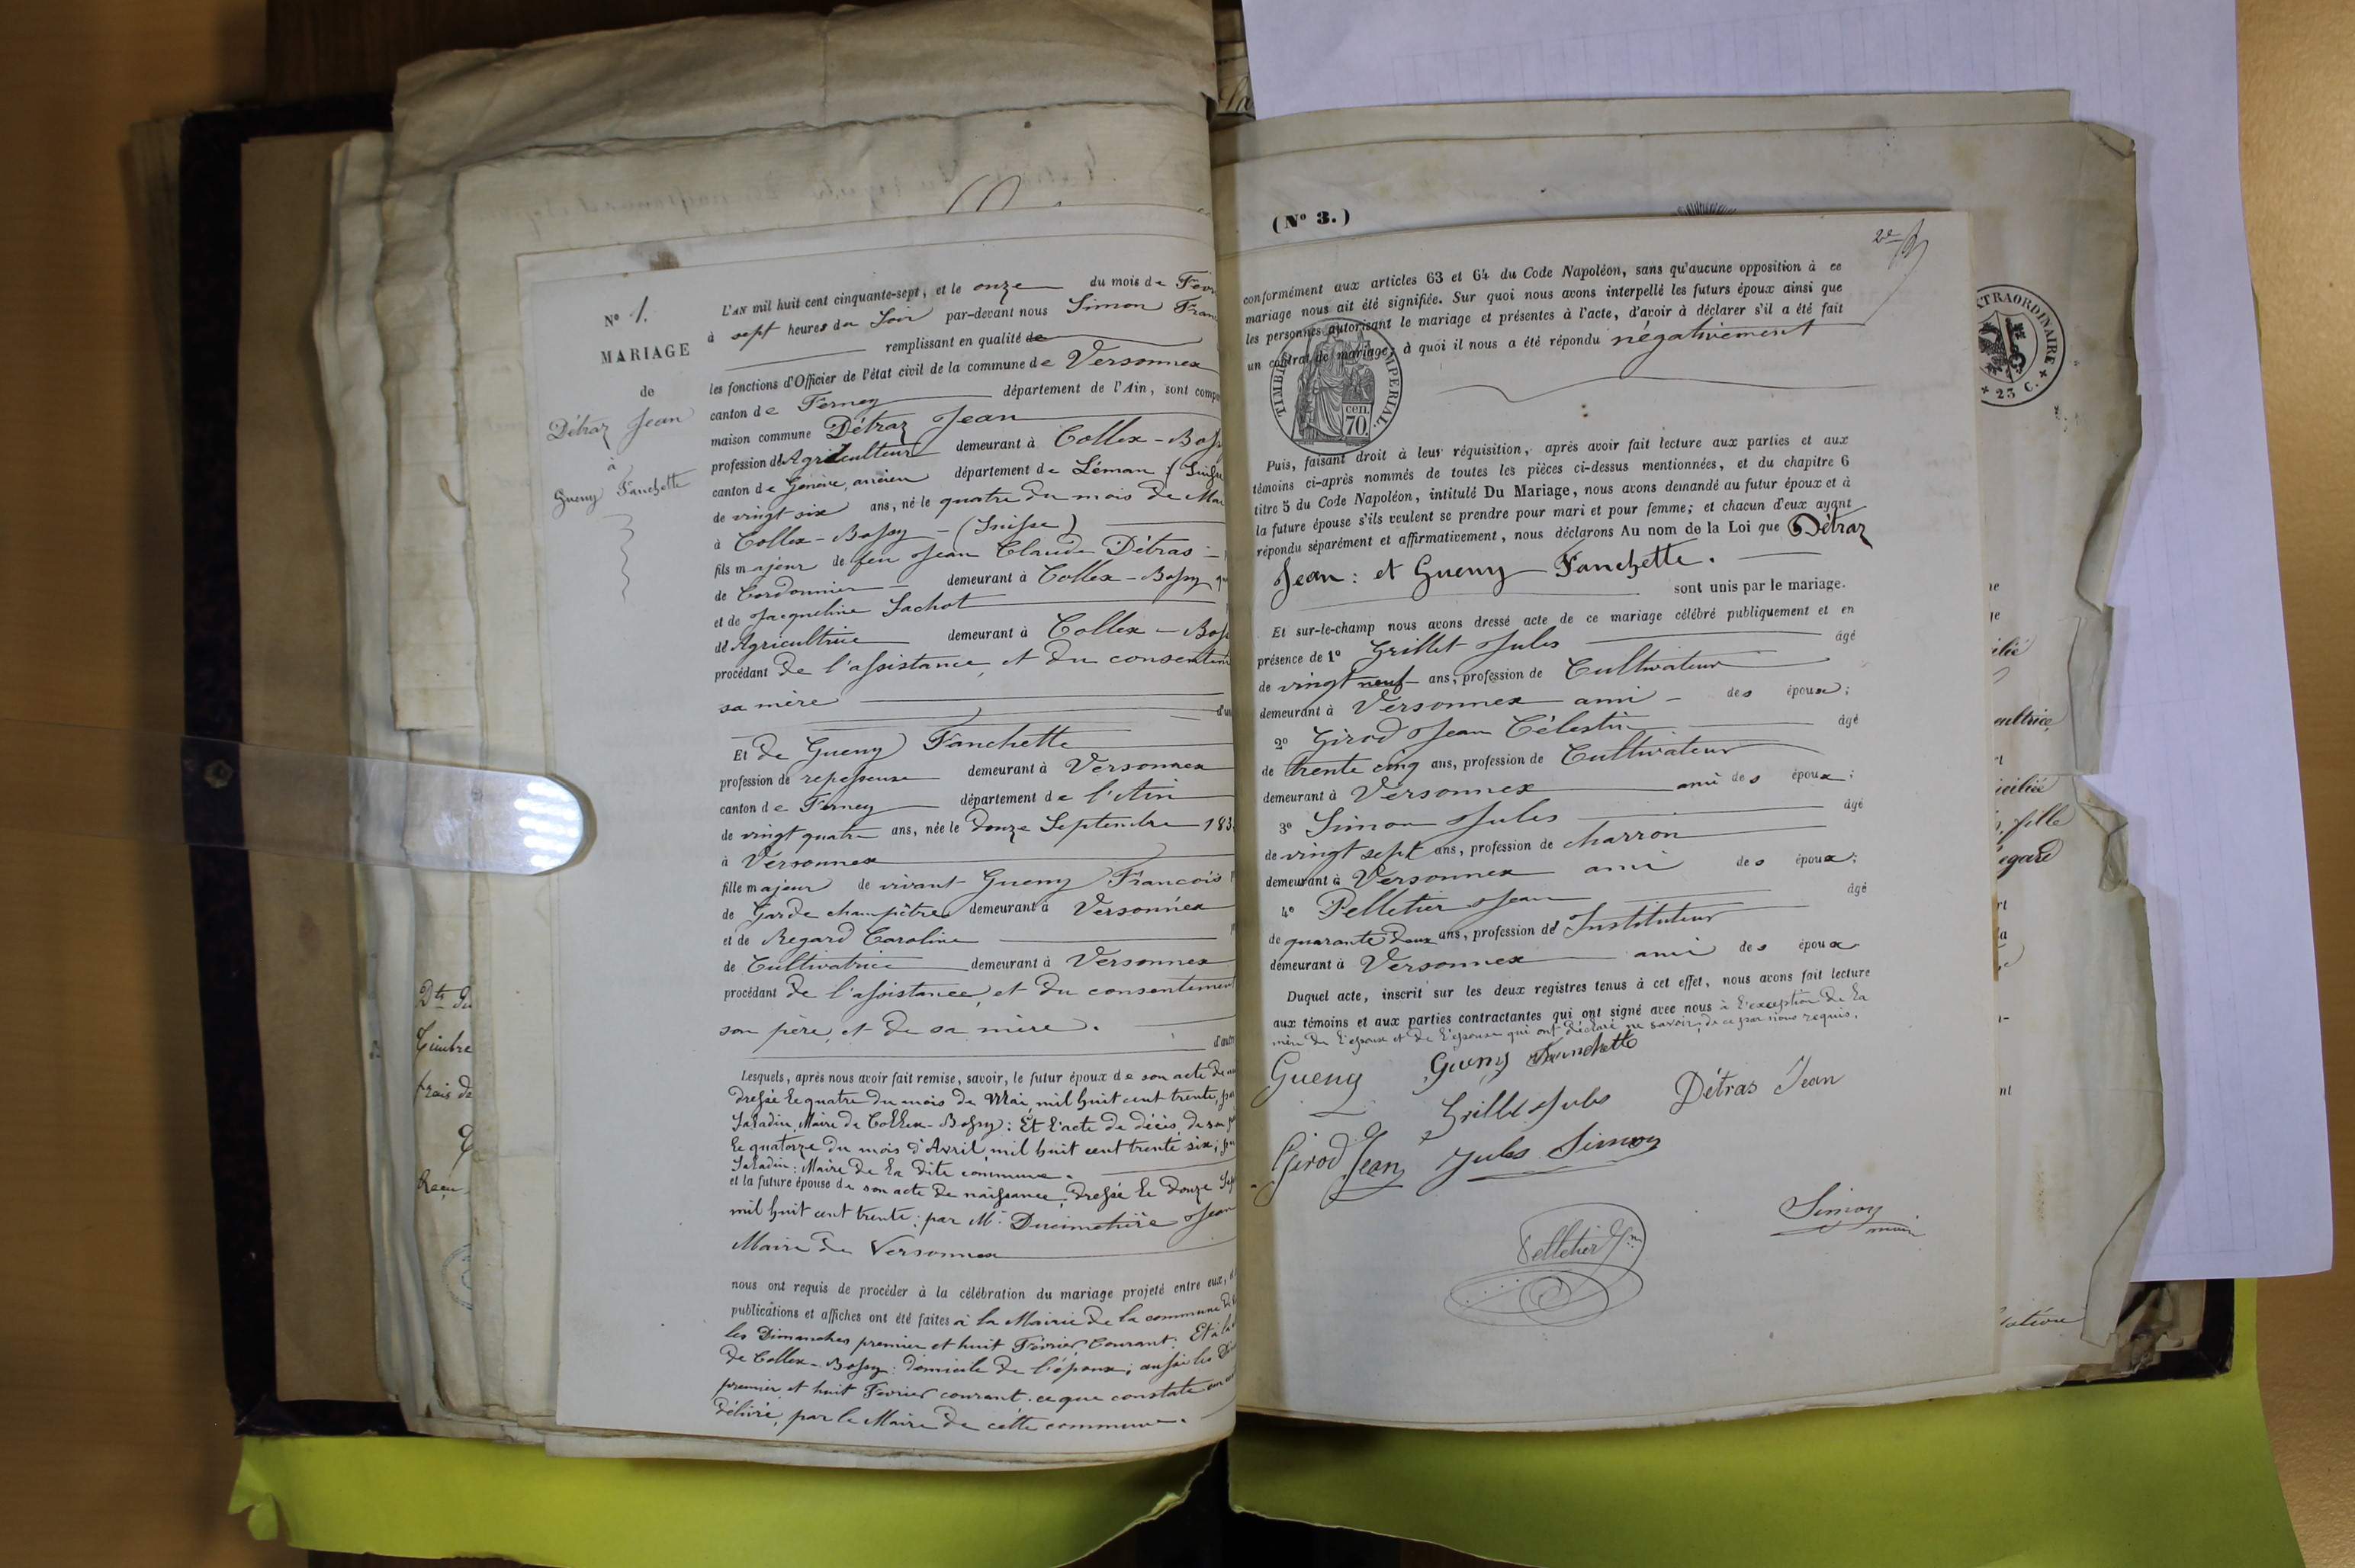 N° 1.
MARIAGE
de
Détraz Jean
à
Gueny Fanchette
L'AN mil huit cent cinquante-sept, et le onze du mois de Fevr
à sept heures du Soir par-devant nous Simon Fran
remplissant en qualité de
les fonctions d'Officier de l'état civil de la commune de Versonnex
canton de Ferney département de l'Ain, sont comp
maison commune Détraz Jean
profession d'Agriculteur demeurant à Collex-Boss
canton de Genève, ancien département de Léman (Suisse
de vingt six ans, né le quatre du mois de Mai
à Collex-Bossy - (Suisse)
fils majeur de feu Jean Claude Détras
de Cordonnier demeurant à Collex-Bossy
et de Jacqueline Lachot
d'Agricultrice demeurant à Collex-Boss
procédant de l'assistance, et du consentem
sa mère
Et de Gueny Fanchette
profession de repasseuse demeurant à Versonnex
canton de Ferney département de l'Ain
de vingt quatre ans, née le Douze Septembre 183
à Versonnex
fille majeur de vivant Gueny François
de Garde champêtre demeurant à Versonnex
et de Regard Caroline
de Cultivatrice demeurant à Versonnex
procédant de l'assistance, et du consentement
son père, et de sa mère.
Lesquels, après nous avoir fait remise, savoir, le futur époux de son acte de
dressé le quatre du mois de Mai, mil huit cent trente, par
Saladin, Maire de Collex-Bossy: Et l'acte de décès, de son
le quatorze du mois d'Avril, mil huit cent trente six, par
Saladin: Maire de la dite commune.
et la future épouse de son acte de naissance, dressé le douze Sep
mil huit cent trente; par Mr. Ducimetière Jean
Maire de Versonnex
nous ont requis de procéder à la célébration du mariage projeté entre eux,
publications et affiches ont été faites à la Mairie de la commune de
les Dimanches premier et huit Février Courant. Et à la
de Collex-Bossy: domicile de l'époux; aussi les
premier et huit Fevrier courant. ce que constate
délivré, par le Maire de cette commune.
(N° 3.)
2e
conformément aux articles 63 et 64 du Code Napoléon, sans qu'aucune opposition à ce
mariage nous ait été signifiée. Sur quoi nous avons interpellé les futurs époux ainsi que
les personnes autorisant le mariage et présentes à l'acte, d'avoir à déclarer s'il a été fait
un contrat de mariage; à quoi il nous a été répondu négativement
TIMBRE IMPERIAL
cen.
70.
Puis, faisant droit à leur réquisition, après avoir fait lecture aux parties et aux
témoins ci-après nommés de toutes les pièces ci-dessus mentionnées, et du chapitre 6
titre 5 du Code Napoléon, intitulé Du Mariage, nous avons demandé au futur époux et à
la future épouse s'ils veulent se prendre pour mari et pour femme; et chacun d'eux ayant
répondu séparément et affirmativement, nous déclarons Au nom de la Loi que Détraz
Jean: et Gueny Fanchette.
sont unis par le mariage.
Et sur-le-champ nous avons dressé acte de ce mariage célébré publiquement et en
présence de 1° Grillet Jules âgé
de vingt neuf ans, profession de Cultivateur
demeurant à Versonnex ami des époux;
2° Girod Jean Célestin âgé
de trente cinq ans, profession de Cultivateur
demeurant à Versonnex ami des époux;
3° Simon Jules âgé
de vingt sept ans, profession de charron
demeurant à Versonnex ami des époux;
4° Pelletier Jean âgé
de quarante deux ans, profession d'Instituteur
demeurant à Versonnex ami des époux
Duquel acte, inscrit sur les deux registres tenus à cet effet, nous avons fait lecture
aux témoins et aux parties contractantes qui ont signé avec nous à l'exception de la
mère de l'époux et de l'épouse qui ont déclaré ne savoir, de ce par nous requis.
Gueny Gueny Fanchette
Grillet Jules Détras Jean
Girod Jean Jules Simon
Simon
maire
Pelletier Jn
EXTRAORDINAIRE
25 C.
Timbre
frais de
Reçu
cultrice,
fille
egard